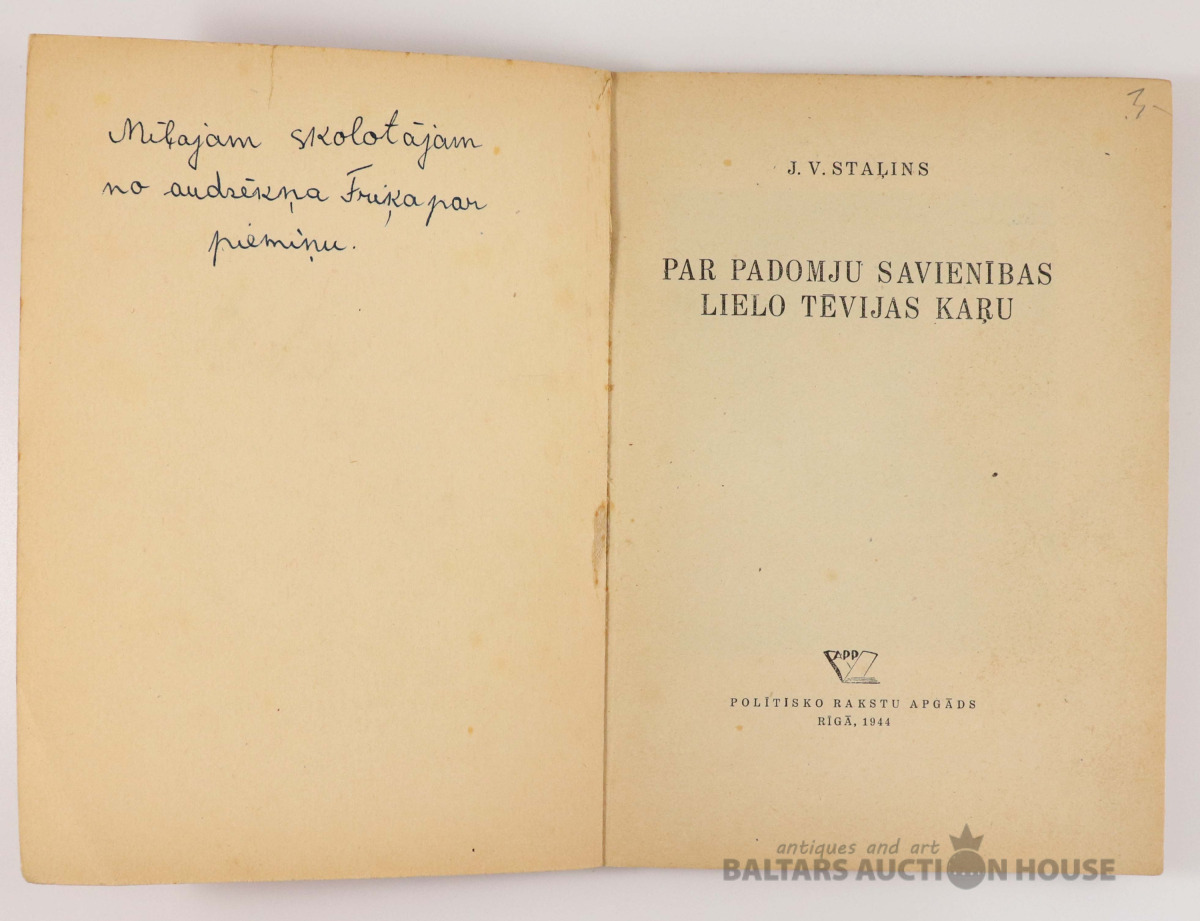 Mīļajam skolotājam
no audzēkņa Friķa par
piemiņu.
3-
J. V. STAĻINS
PAR PADOMJU SAVIENĪBAS
LIELO TĒVIJAS KAŖU
APP
POLĪTISKO RAKSTU APGĀDS
RĪGĀ, 1944
antiques and art
BALTARS AUCTION HOUSE